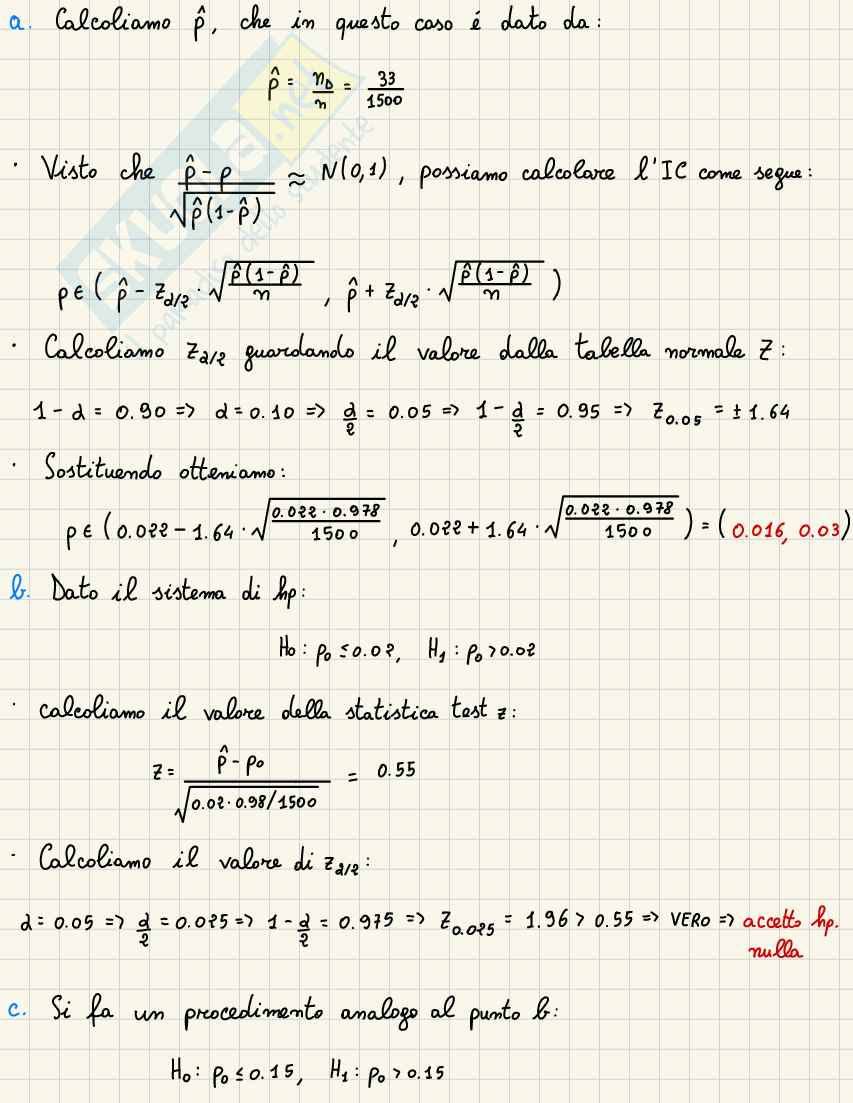 a. Calcoliamo p̂, che in questo caso é dato da:
p̂ = n_D/n = 33/1500
· Visto che (p̂ - p)/√(p̂(1-p̂)) ≈ N(0,1), possiamo calcolare l'IC come segue:
p ∈ ( p̂ - z_α/2 · √(p̂(1-p̂)/n) , p̂ + z_α/2 · √(p̂(1-p̂)/n) )
· Calcoliamo z_α/2 guardando il valore dalla tabella normale Z:
1 - α = 0.90 => α = 0.10 => α/2 = 0.05 => 1 - α/2 = 0.95 => z_0.05 = ± 1.64
· Sostituendo otteniamo:
p ∈ ( 0.022 - 1.64 · √(0.022 · 0.978/1500) , 0.022 + 1.64 · √(0.022 · 0.978/1500) ) = ( 0.016, 0.03)
b. Dato il sistema di hp:
H₀ : p₀ ≤ 0.02, H₁ : p₀ > 0.02
· calcoliamo il valore della statistica test z:
z = (p̂ - p₀)/√(0.02 · 0.98/1500) = 0.55
· Calcoliamo il valore di z_α/2:
α = 0.05 => α/2 = 0.025 => 1 - α/2 = 0.975 => z_0.025 = 1.96 > 0.55 => VERO => accetto hp.
nulla
c. Si fa un procedimento analogo al punto b:
H₀ : p₀ ≤ 0.15, H₁ : p₀ > 0.15
SKUOLA.net
il paradiso dello studente